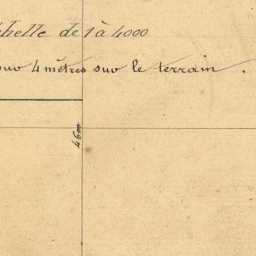 helle de 1 à 4000
4 mètres sur le terrain.
4600